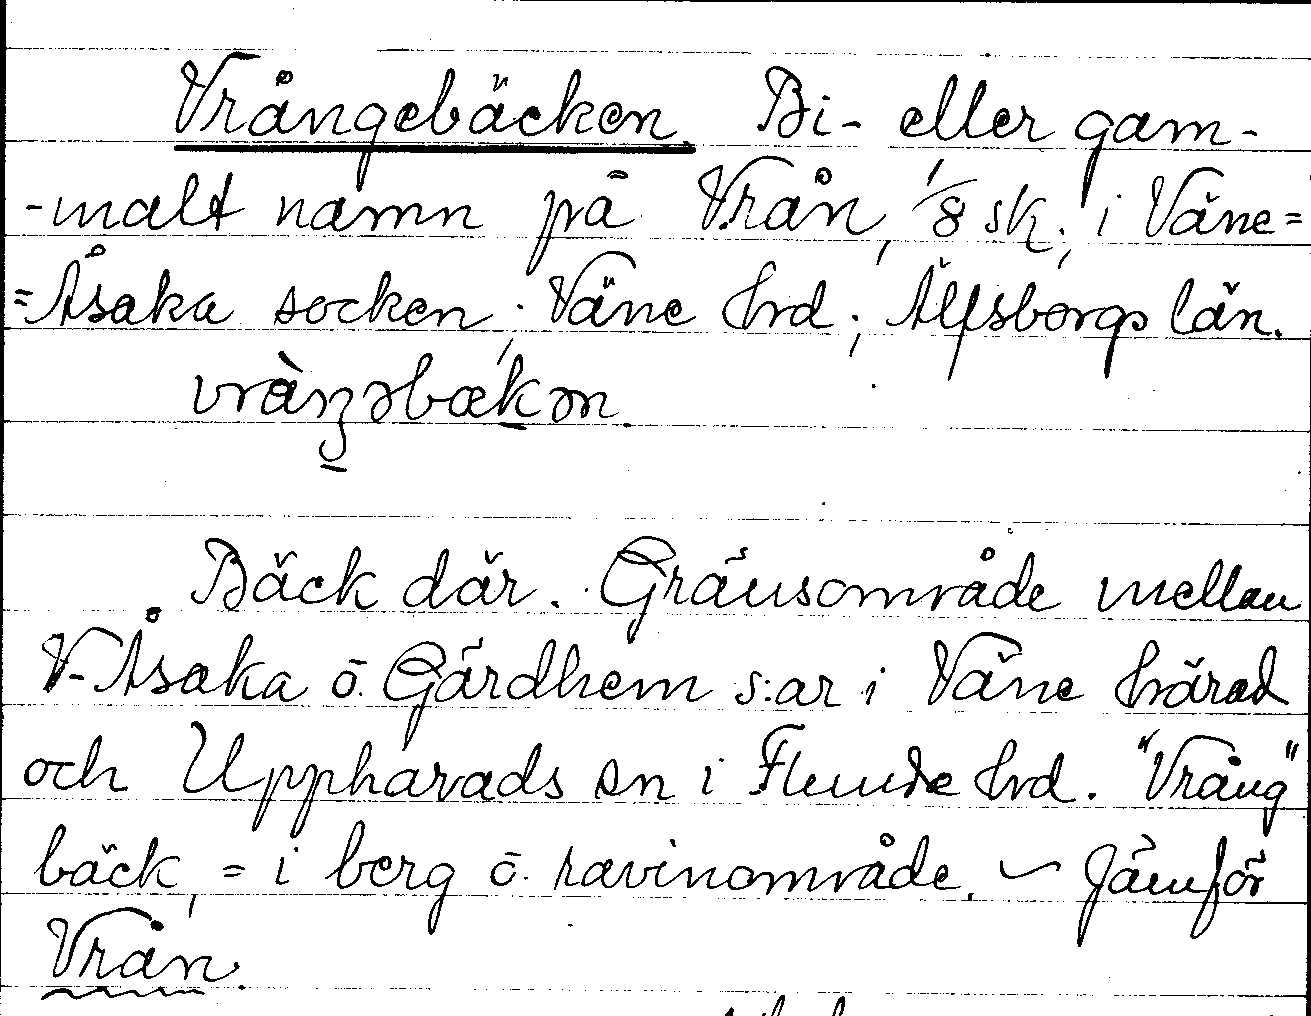 Vrångebäcken. Bi- eller gam-
-malt namn på Vrån, 1/8 sk, i Väne=
=Åsaka socken, Väne hrd, Älfsborgs län.
vràŋəbækən.
Bäck där. Gränsområde mellan
V-Åsaka o. Gärdhem s:ar i Väne härad
och Upphärads sn i Flundre hrd. "Vrång"
bäck, = i berg o. ravinområde. ~ Jämför
Vrån.